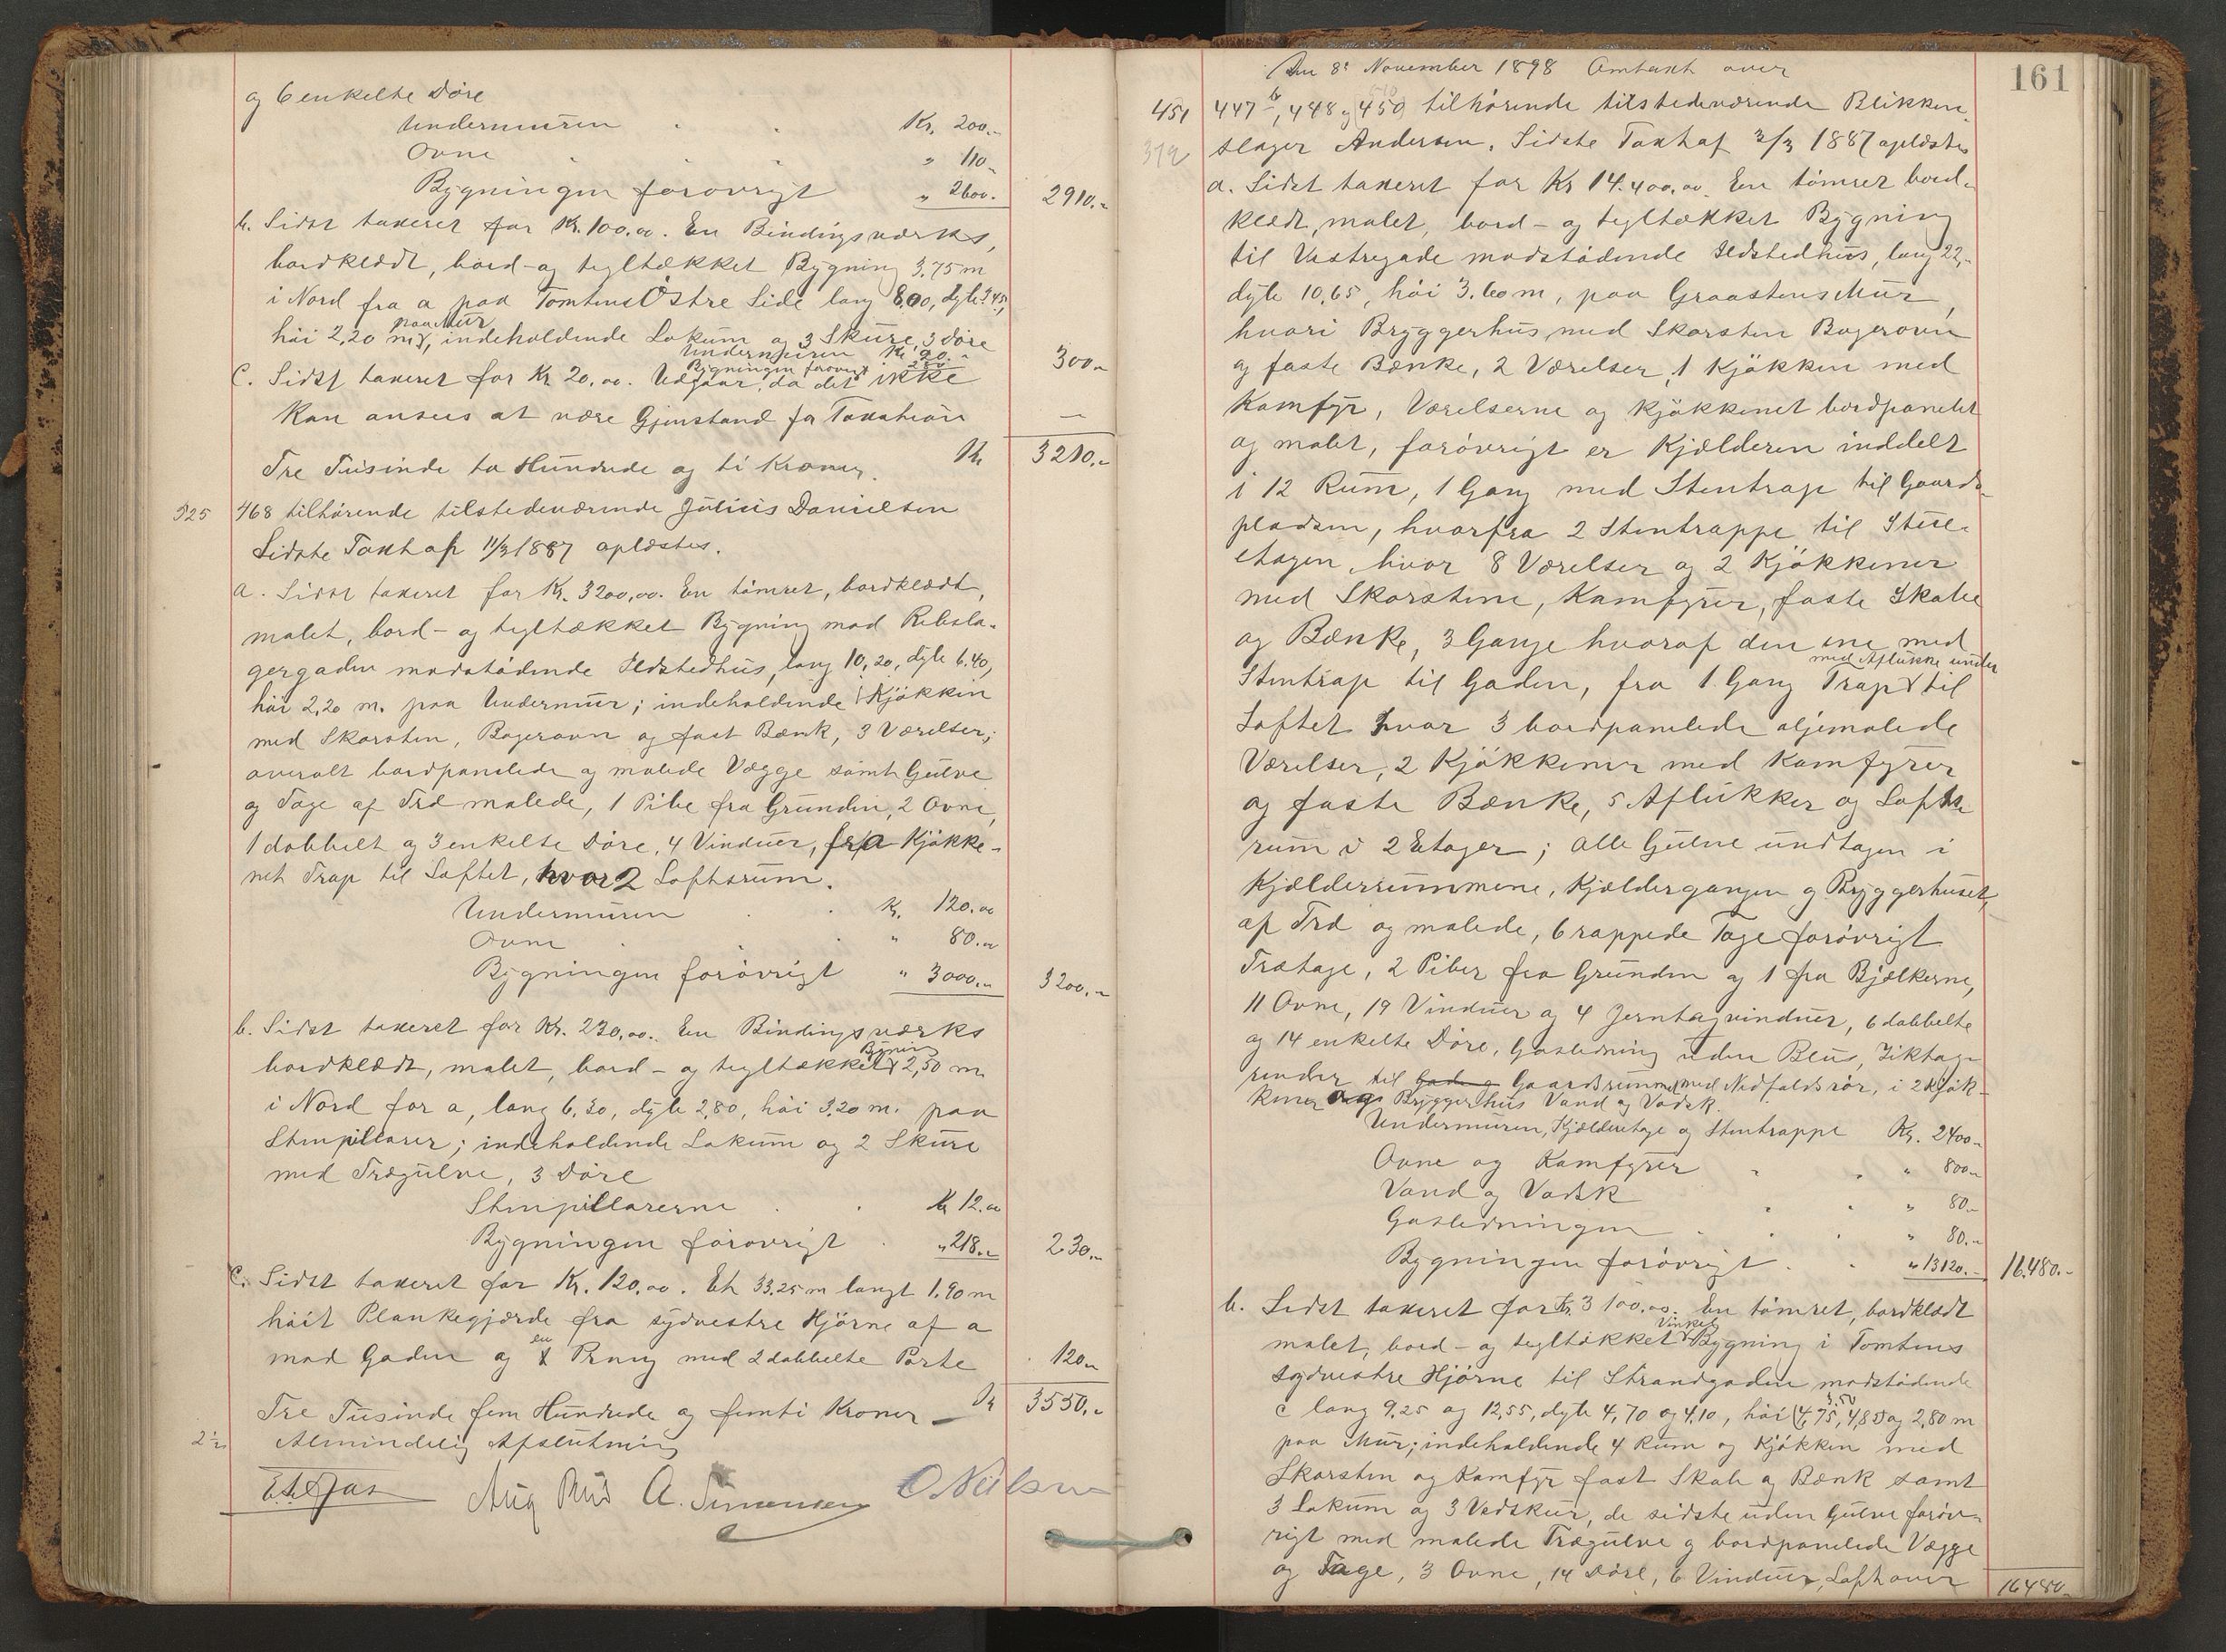 og 6 enkelte Døre
Undermuren Kr. 200.-
Ovne " 110.-
Bygningen forøvrigt " 2600.- 2910.-
b. Sidst taxeret for Kr. 100.00. En Bindingsværks,
bordklædt, bord- og tegltækket Bygning 3.75 m
i Nord fra a paa Tomtens Østre Side lang 8,00, dyb 2.45,
høi 2,20 m paa Mur, indeholdende Lokum og 3 Skure, 3 Døre
Undermuren Kr. 20.-
Bygningen forøvrigt 280 300.-
C. Sidst taxeret for Kr 20.00. Udgaar, da det ikke
kan ansees at være Gjenstand for Taxation —
Tre Tusinde to Hundrede og ti Kroner. Kr 3210.-
325 468 tilhørende tilstedeværende Julius Danielsen
Sidste Taxt af 11/3 1887 oplæstes.
a. Sidst taxeret for Kr. 3200,00. En tømret, bordklædt,
malet, bord- og tegltækket Bygning mod Rebsla-
gergaden modstødende Ildstedhus, lang 10,20, dyb 6.40,
høi 2,20 m. paa Undermur; indeholdende 1 Kjøkken
med Skorsten, Bagerovn og fast Bænk, 3 Værelser;
overalt bordpanelede og malede Vægge samt Gulve
og Tage af Træ malede, 1 Pibe fra Grunden, 2 Ovne,
1 dobbelt og 3 enkelte Døre, 4 Vinduer, fra Kjøkke-
net Trap til Loftet, hvor 2 Loftsrum.
Undermuren Kr. 120.00
Ovne " 80.00
Bygningen forøvrigt " 3000.- 3200.-
b. Sidst taxeret for Kr. 230,00. En Bindingsværks
bordklædt, malet, bord- og tegltækket Bygning 2,50 m
i Nord for a, lang 6.30, dyb 2,80, høi 3.20 m. paa
Stenpillarer; indeholdende Lokum og 2 Skure
med Trægulve, 3 Døre
Stenpillarerne Kr 12.00
Bygningen forøvrigt " 218.- 230.-
C. Sidst taxeret for Kr. 120,00. Et 33.25 m langt 1.90 m
høit Plankegjærde fra sydvestre Hjørne af a
mod Gaden og en med 2 dobbelte Porte 120.-
Tre Tusinde fem Hundrede og femti Kroner — Kr 3550.-
Almindelig Afslutning
Aug Rud A. Simensen O Nielsen
161
Den 8de November 1898 Omtaxt over
451 447 b, 448 og 450 tilhørende tilstedeværende Blikken-
372 slager Andersen. Sidste Taxt af 3/3 1887 oplæstes
a. Sidst taxeret for Kr 14.400,00. En tømret bord-
klædt, malet, bord- og tegltækket Bygning
til Vestregade modstødende Ildstedhus, lang 22,-
dyb 10,65, høi 3.60 m, paa Graastensmur,
hvori Bryggerhus med Skorsten Bagerovn
og faste Bænke, 2 Værelser, 1 Kjøkken med
Komfyr, Værelserne og Kjøkkenet bordpanelet
og malet, forøvrigt er Kjælderen inddelt
i 12 Rum, 1 Gang med Stentrap til Gaards-
pladsen, hvorfra 2 Stentrappe til Stue-
etagen, hvor 8 Værelser og 2 Kjøkkener
med Skorstene, Komfyrer, faste Skabe
og Bænke, 3 Gange hvoraf den ene med
Stentrap til Gaden, fra 1 Gang Trap med Aflukke under til
Loftet hvor 3 bordpanelede oljemalede
Værelser, 2 Kjøkkener med Komfyrer
og faste Bænke, 5 Aflukker og Lofts-
rum i 2 Etager; alle Gulve undtagen i
Kjælderrummene, Kjældergangen og Bryggerhuset,
af Træ og malede, 6 rappede Tage forøvrigt
Trætage, 2 Piber fra Grunden og 1 fra Bjælkerne,
11 Ovne, 19 Vinduer og 4 Jerntagvinduer, 6 dobbelte
og 14 enkelte Døre, Gasledning uden Blus, Ziktag-
render til Gade og Gaardsrummet med Nedfaldsrør, i 2 Kjøk-
kener og Bryggerhus Vand og Vadsk.
Undermuren, Kjælderetage og Stentrappe Kr. 2400.-
Ovne og Komfyrer " 800.-
Vand og Vadsk " 80.-
Gasledningen " 80.-
Bygningen forøvrigt " 13120.- 16.480.-
b. Sidst taxeret for Kr. 3100.00. En tømret, bordklædt
malet, bord- og tegltækket Vinkel Bygning i Tomtens
sydvestre Hjørne til Strandgaden modstødende
c lang 9.25 og 12,55, dyb 4,70 og 4,10, høi 4,75, 3.50, 4,85 og 2,80 m
paa Mur; indeholdende 4 Rum og Kjøkken med
Skorsten og Komfyr fast Skab og Bænk samt
3 Lokum og 3 Vedskur, de sidste uden Gulve forøv-
rigt med malede Trægulve og bordpanelede Vægge
og Tage, 3 Ovne, 14 Døre, 6 Vinduer, Loft over
16480.-